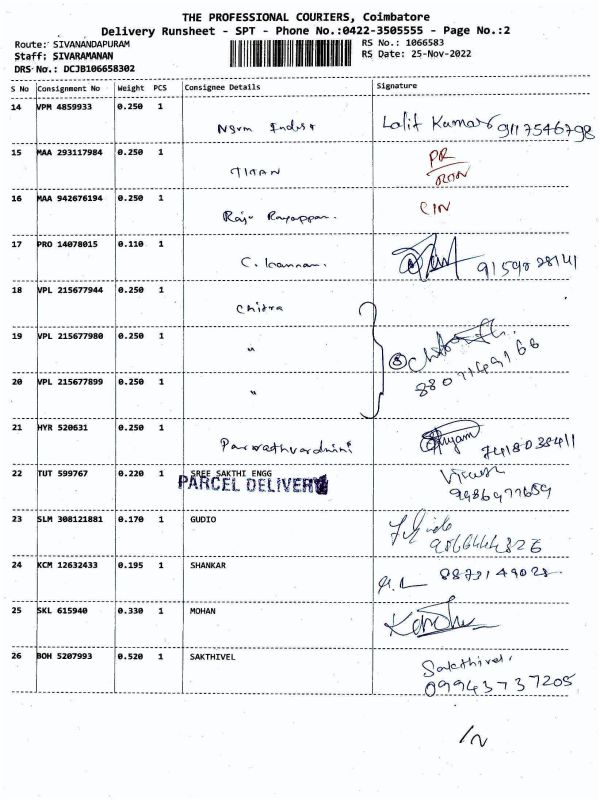 THE PROFESSIONAL COURIERS, Coimbatore
Delivery Runsheet - SPT - Phone No.:0422-3505555 - Page No.:2
Route: SIVANANDAPURAM RS No.: 1066583
Staff: SIVARAMANAN RS Date: 25-Nov-2022
DRS No.: DCJB106658302
S No Consignment No Weight PCS Consignee Details Signature
14 VPM 4859933 0.250 1 Lalit Kumar 9117546798
15 MAA 293117984 0.250 1 TITAN PR
16 MAA 942676194 0.250 1 Raju Rayappan.
17 PRO 14078015 0.110 1 C. Kannan.
18 VPL 215677944 0.250 1 Chitra
19 VPL 215677980 0.250 1 "
20 VPL 215677899 0.250 1 " 8807149168
21 HYR 520631 0.250 1 Parvathvardnini
22 TUT 599767 0.220 1 SREE SAKTHI ENGG
PARCEL DELIVERY
23 SLM 308121881 0.170 1 GUDIO
24 KCM 12632433 0.195 1 SHANKAR
25 SKL 615940 0.330 1 MOHAN
26 BOH 5207993 0.520 1 SAKTHIVEL Sakthivel.
09943737205